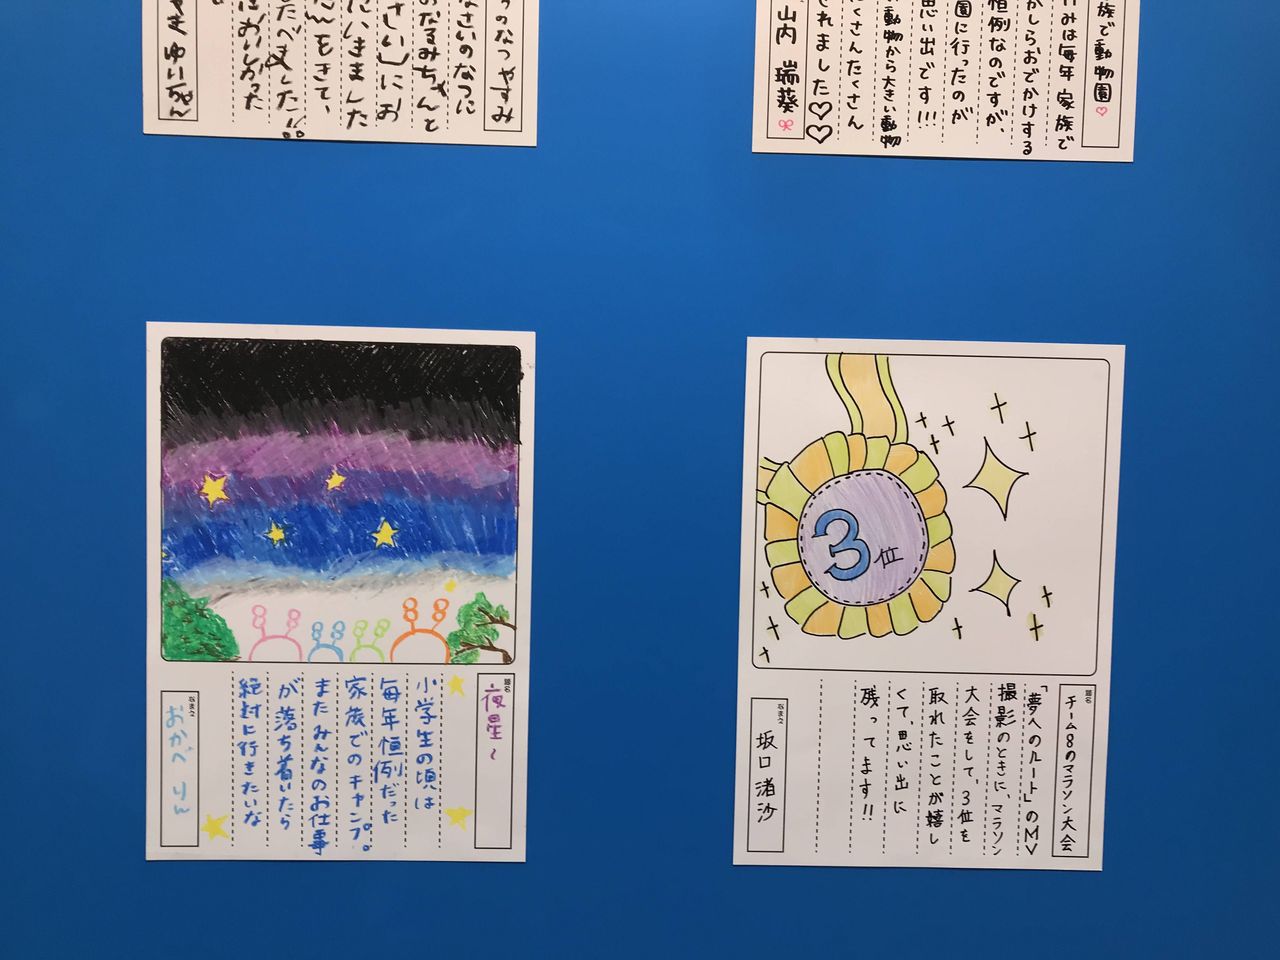 のなつやすみ
なさいのなつに
のなるみちゃんと
さい」にお
にいきました
をきて、
たべました!!
はおいしかった
ゆいちゃん
族で動物園♡
みは毎年家族で
かしらおでかけする
恒例なのですが、
園に行ったのが
思い出です!!!
動物から大きい動物
くさんたくさん
れました♡♡
山内 瑞葵
3位
題名
夜星~
小学生の頃は
毎年恒例だった
家族でのキャンプ。
またみんなのお仕事
が落ち着いたら
絶対に行きたいな
なまえ
おかべ りん
題名
チーム8のマラソン大会
「夢へのルート」のMV
撮影のときに、マラソン
大会をして、3位を
取れたことが嬉し
くて、思い出に
残ってます!!
なまえ
坂口渚沙